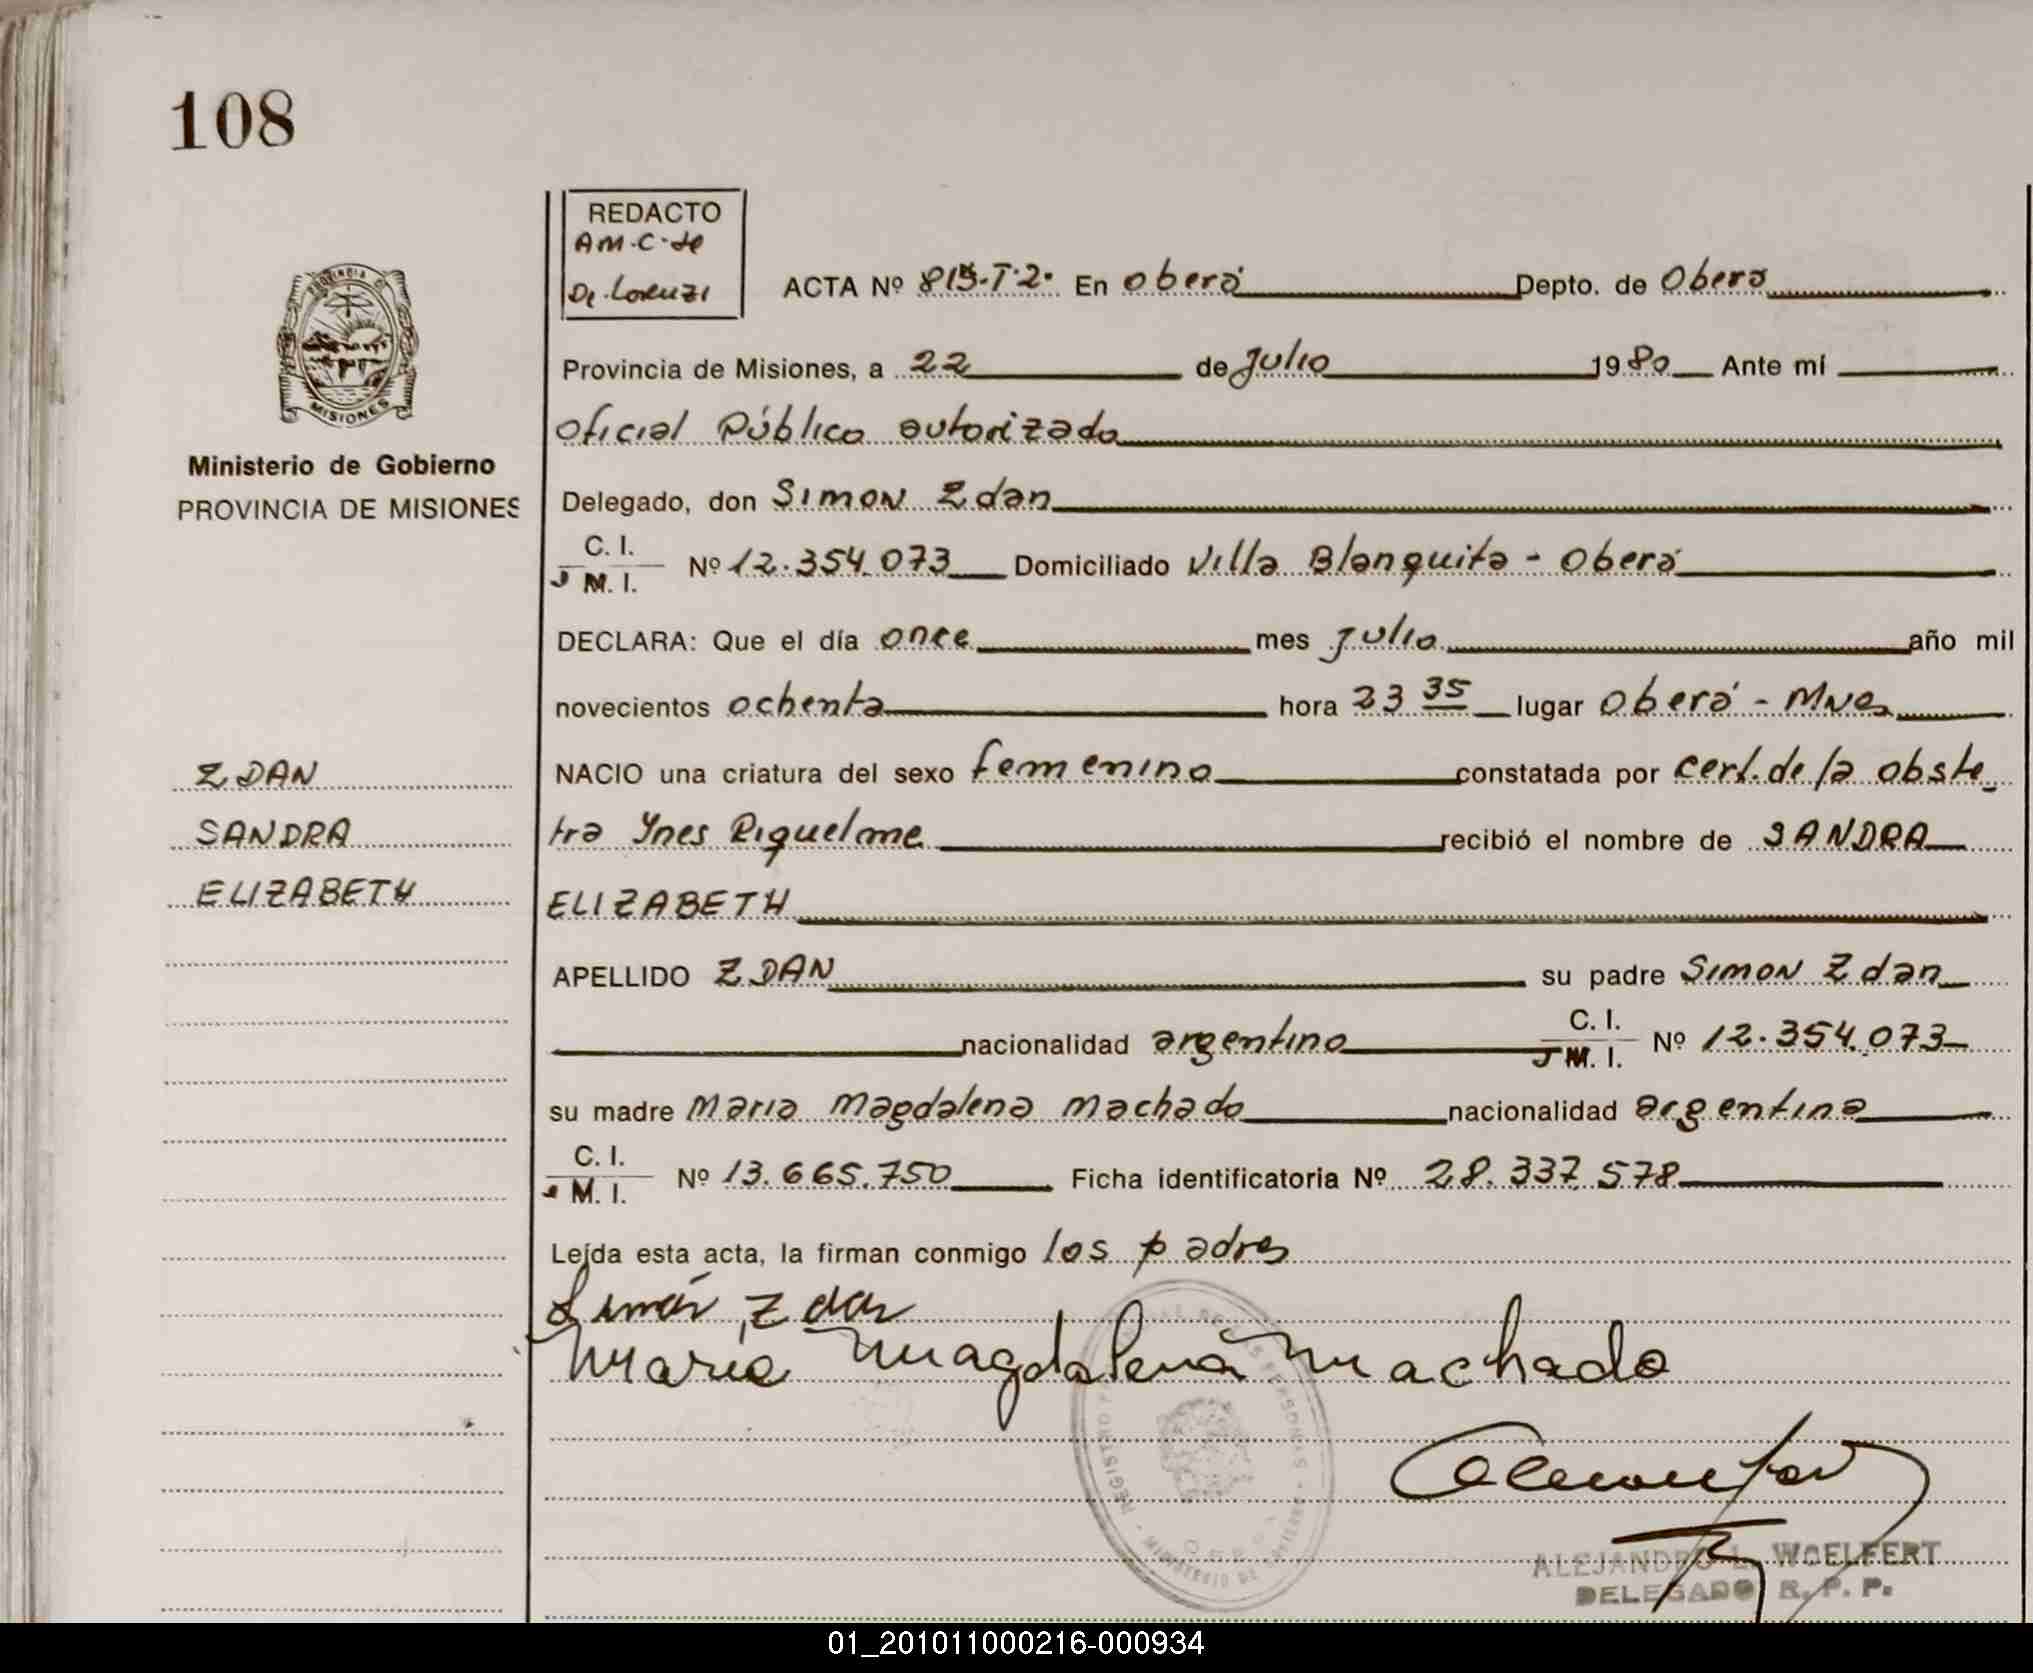 108
REDACTO
AM.C. de
De Lorenzi
ACTA Nº 815-T.2. En Oberá Depto. de Oberá
Provincia de Misiones, a 22 de Julio 1980 Ante mí
Oficial Público autorizado
PROVINCIA DE
MISIONES
Ministerio de Gobierno
PROVINCIA DE MISIONES
Delegado, don Simon Zdan
C. I.
M. I. Nº 12.354.073 Domiciliado Villa Blanquita - Oberá
DECLARA: Que el día once mes Julio año mil
novecientos ochenta hora 23 35 lugar Oberá - Mnes
ZDAN
NACIO una criatura del sexo femenino constatada por cert. de la obste
SANDRA
tra Ynes Riquelme recibió el nombre de SANDRA
ELIZABETH
ELIZABETH
APELLIDO ZDAN su padre Simon Zdan
nacionalidad argentino C. I.
M. I. Nº 12.354.073
su madre Maria Magdalena Machado nacionalidad argentina
C. I.
M. I. Nº 13.665.750 Ficha identificatoria Nº 28.337.578
Leída esta acta, la firman conmigo los padres
Simón Zdan
Maria Magdalena Machado
ALEJANDRO L. WOELFERT
DELEGADO R. P. P.
01_201011000216-000934